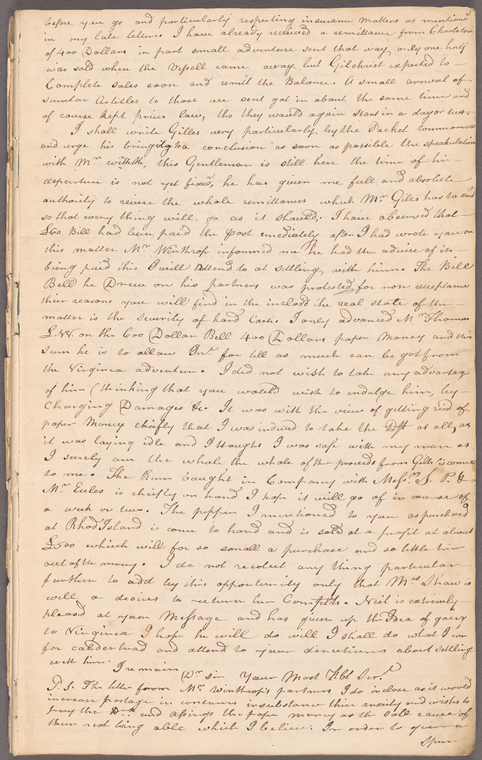 before you go and particularly respecting insurance matters as mentioned
in my late letters. I have already received a remittance from Charleton
of 400 Dollars in part small adventure sent that way, only one half
was sold when the Vessell came away but Gilchrist expected to
Complete Sales soon and remit the Balance. A small arrival of
similar Artitles to those we sent got in about the same time and
of course kept prices low, tho they would again start in a day or two.
I shall write Gilles very particularly by the Packet tommorrow
and urge his bringing to a conclusion as soon as possible the speculation
with Mr. this Gentleman is still here the time of his
departure is not yet fixed, he has given me full and absolute
authority to receive the whole remittances which Mr. Giles has to send
so that every thing will go as it should; I have observed that
£60 Bill had been paid the post emediately after I had wrote you on
this matter Mr Winthrop informed me he had the advice of its
being paid this I will attend to at settling with him. The Bill
Bell he Drew on his partners was protested for non acceptance
their reasons you will find in the inclosed the real state of the
matter is the Scarcity of hard Cash. I only advanced Mr Thomas
on the 600 Dollar Bell 400 Dollars paper Money and this
Sum he is to allow Int. for till as much can be got from
the Virginia adventure. I did not wish to take any advantage
of him (thinking that you would wish to indulge him, by
Charging Damages &c. It was with the view of getting rid of
paper Money chiefly that I was induced to take the Dft at all, as
it was laying idle and I thought I was safe with my man as
I surely am the whole the whole of the proceeds from Gilles is come
to me. The Rum bought in Company with Messrs. S. P. &
Mr. Eules is chiefly on hand I hope it will go of in course of
a week or two. The pepper I mentioned to you as purchased
at Rhod Island is come to hand and is sold at a profit at about
£500 which will for so small a purchase and so little time
out of the money. I do not recolect any thing particular
further to add by this opportunity only that Mrs Shaw is
well & desires to return her Compts. Neil is extremely
pleased at your Message and has given up the Idea of going
to Virginea I hope he will do well I shall do what I can
for calderhead and attend to your directions about settling
with him. I remain
Dr Sir Your Most Hbl Servt
P.S. The letter from Mr. Winthrop's partners I do inclose as it would
increase postage in substance their anxiety and wishes to
pay the and assigns the paper money as the Sole cause of
their not being able which I believe. In order to open a
Spur